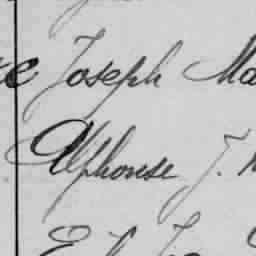 Joseph Ma
Alphonse J.